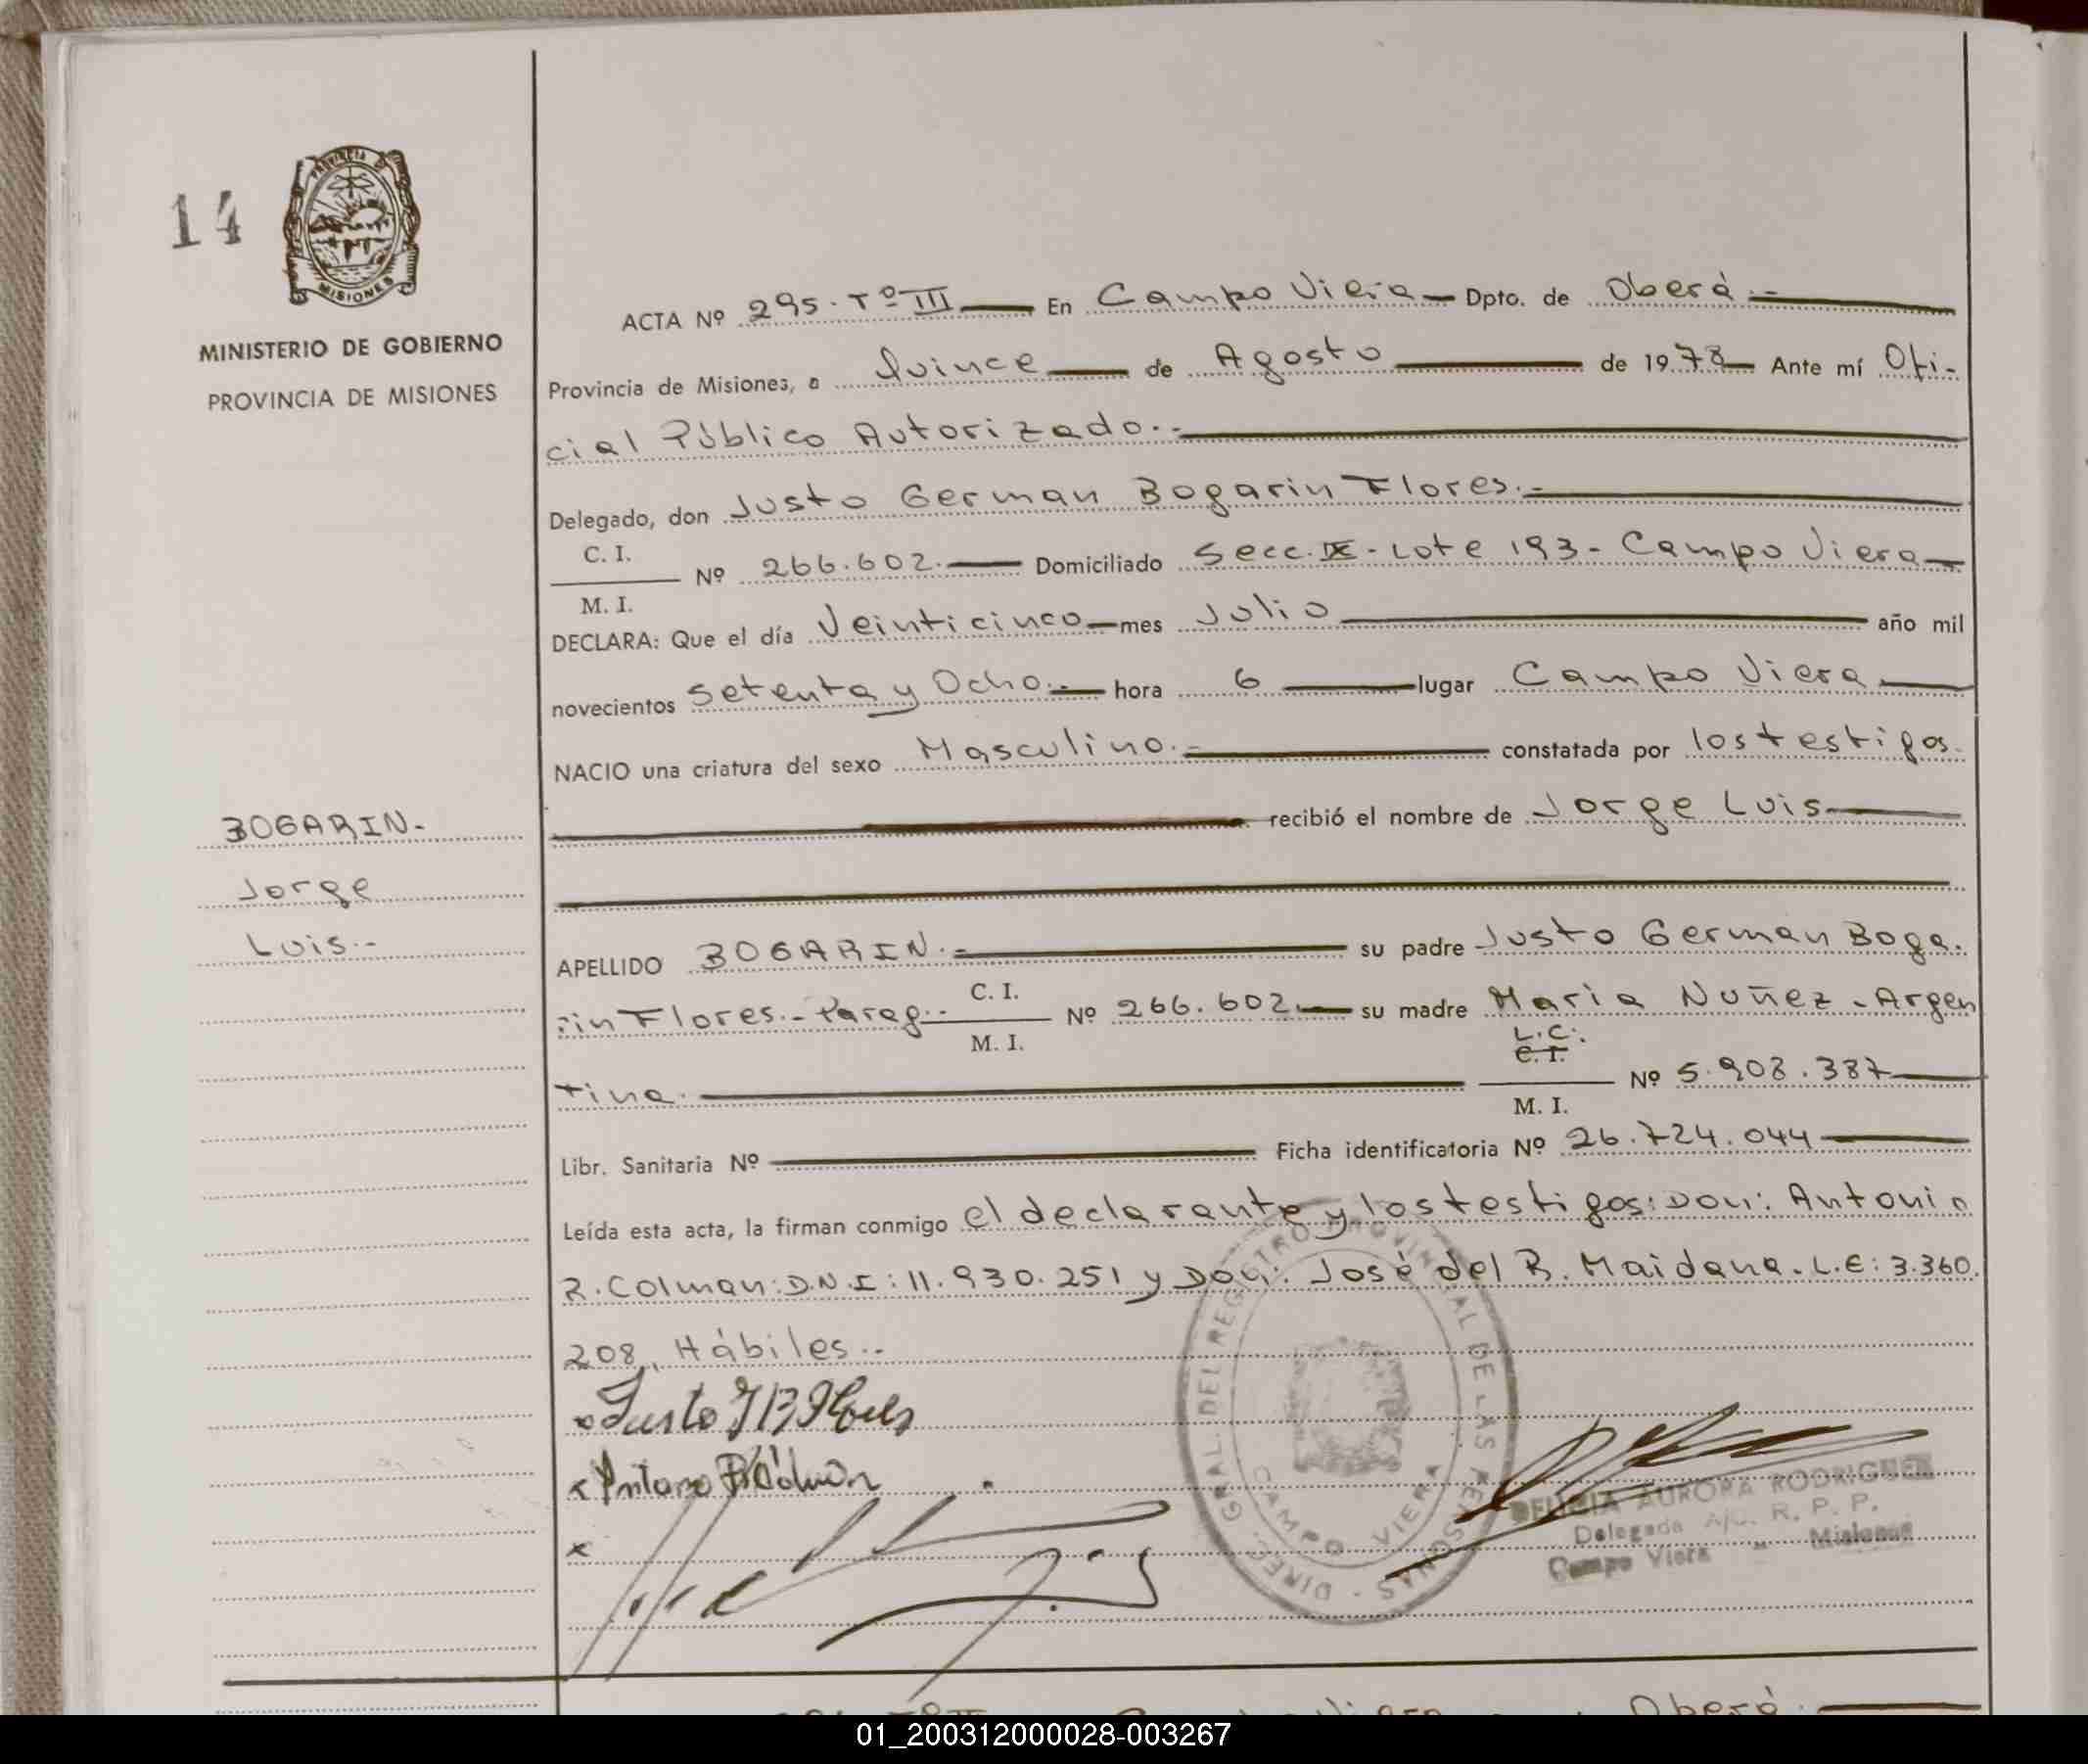 14
PROVINCIA D
MISIONES
MINISTERIO DE GOBIERNO
PROVINCIA DE MISIONES
BOGARIN.-
Jorge
Luis.-
ACTA Nº 295. Tº III En Campo Viera Dpto. de Oberá.-
Provincia de Misiones, a Quince de Agosto de 1978 Ante mí Ofi-
cial Público Autorizado.-
Delegado, don Justo German Bogarin Flores.-
C. I.
M. I. Nº 266.602.- Domiciliado Secc. IX - Lote 193 - Campo Viera
DECLARA: Que el día Veinticinco mes Julio año mil
novecientos Setenta y Ocho.- hora 6 lugar Campo Viera
NACIO una criatura del sexo Masculino.- constatada por los testigos.
recibió el nombre de Jorge Luis
APELLIDO BOGARIN.- su padre Justo German Boga.
rin Flores.- Parag.- C. I.
M. I. Nº 266.602 su madre Maria Nuñez - Argen
L.C.
C. I.
tina. M. I. Nº 5.908.387
Libr. Sanitaria Nº Ficha identificatoria Nº 26.724.044
Leída esta acta, la firman conmigo el declarante y los testigos: Don: Antonio
R. Colman: D.N.I: 11.930.251 y Don: José del R. Maidana. L.E: 3.360.
208, Hábiles.-
x Justo G B Flores
x Antonio R Colman
x
DIREC. GRAL. DEL REGISTRO PROVINCIAL DE LAS PERSONAS
CAMPO VIERA
DELICIA AURORA RODRIGUEZ
Delegada A/C. R. P. P.
Campo Viera - Misiones
Oberá.
01_200312000028-003267